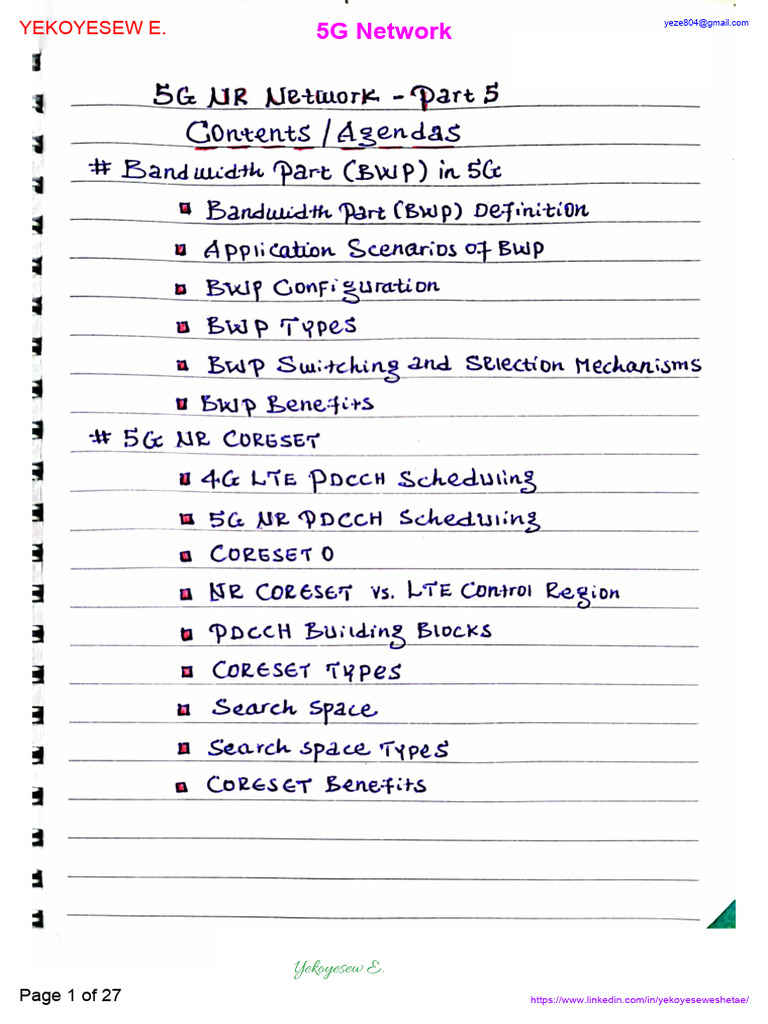 YEKOYESEW E.
5G Network
yeze804@gmail.com
5G NR Network - Part 5
Contents / Agendas
# Bandwidth Part (BWP) in 5G
Bandwidth Part (BWP) Definition
Application Scenarios of BWP
BWP Configuration
BWP Types
BWP Switching and Selection Mechanisms
BWP Benefits
# 5G NR CORESET
4G LTE PDCCH Scheduling
5G NR PDCCH Scheduling
CORESET 0
NR CORESET vs. LTE Control Region
PDCCH Building Blocks
CORESET Types
Search Space
Search space Types
CORESET Benefits
Yekoyesew E.
Page 1 of 27
https://www.linkedin.com/in/yekoyeseweshetae/